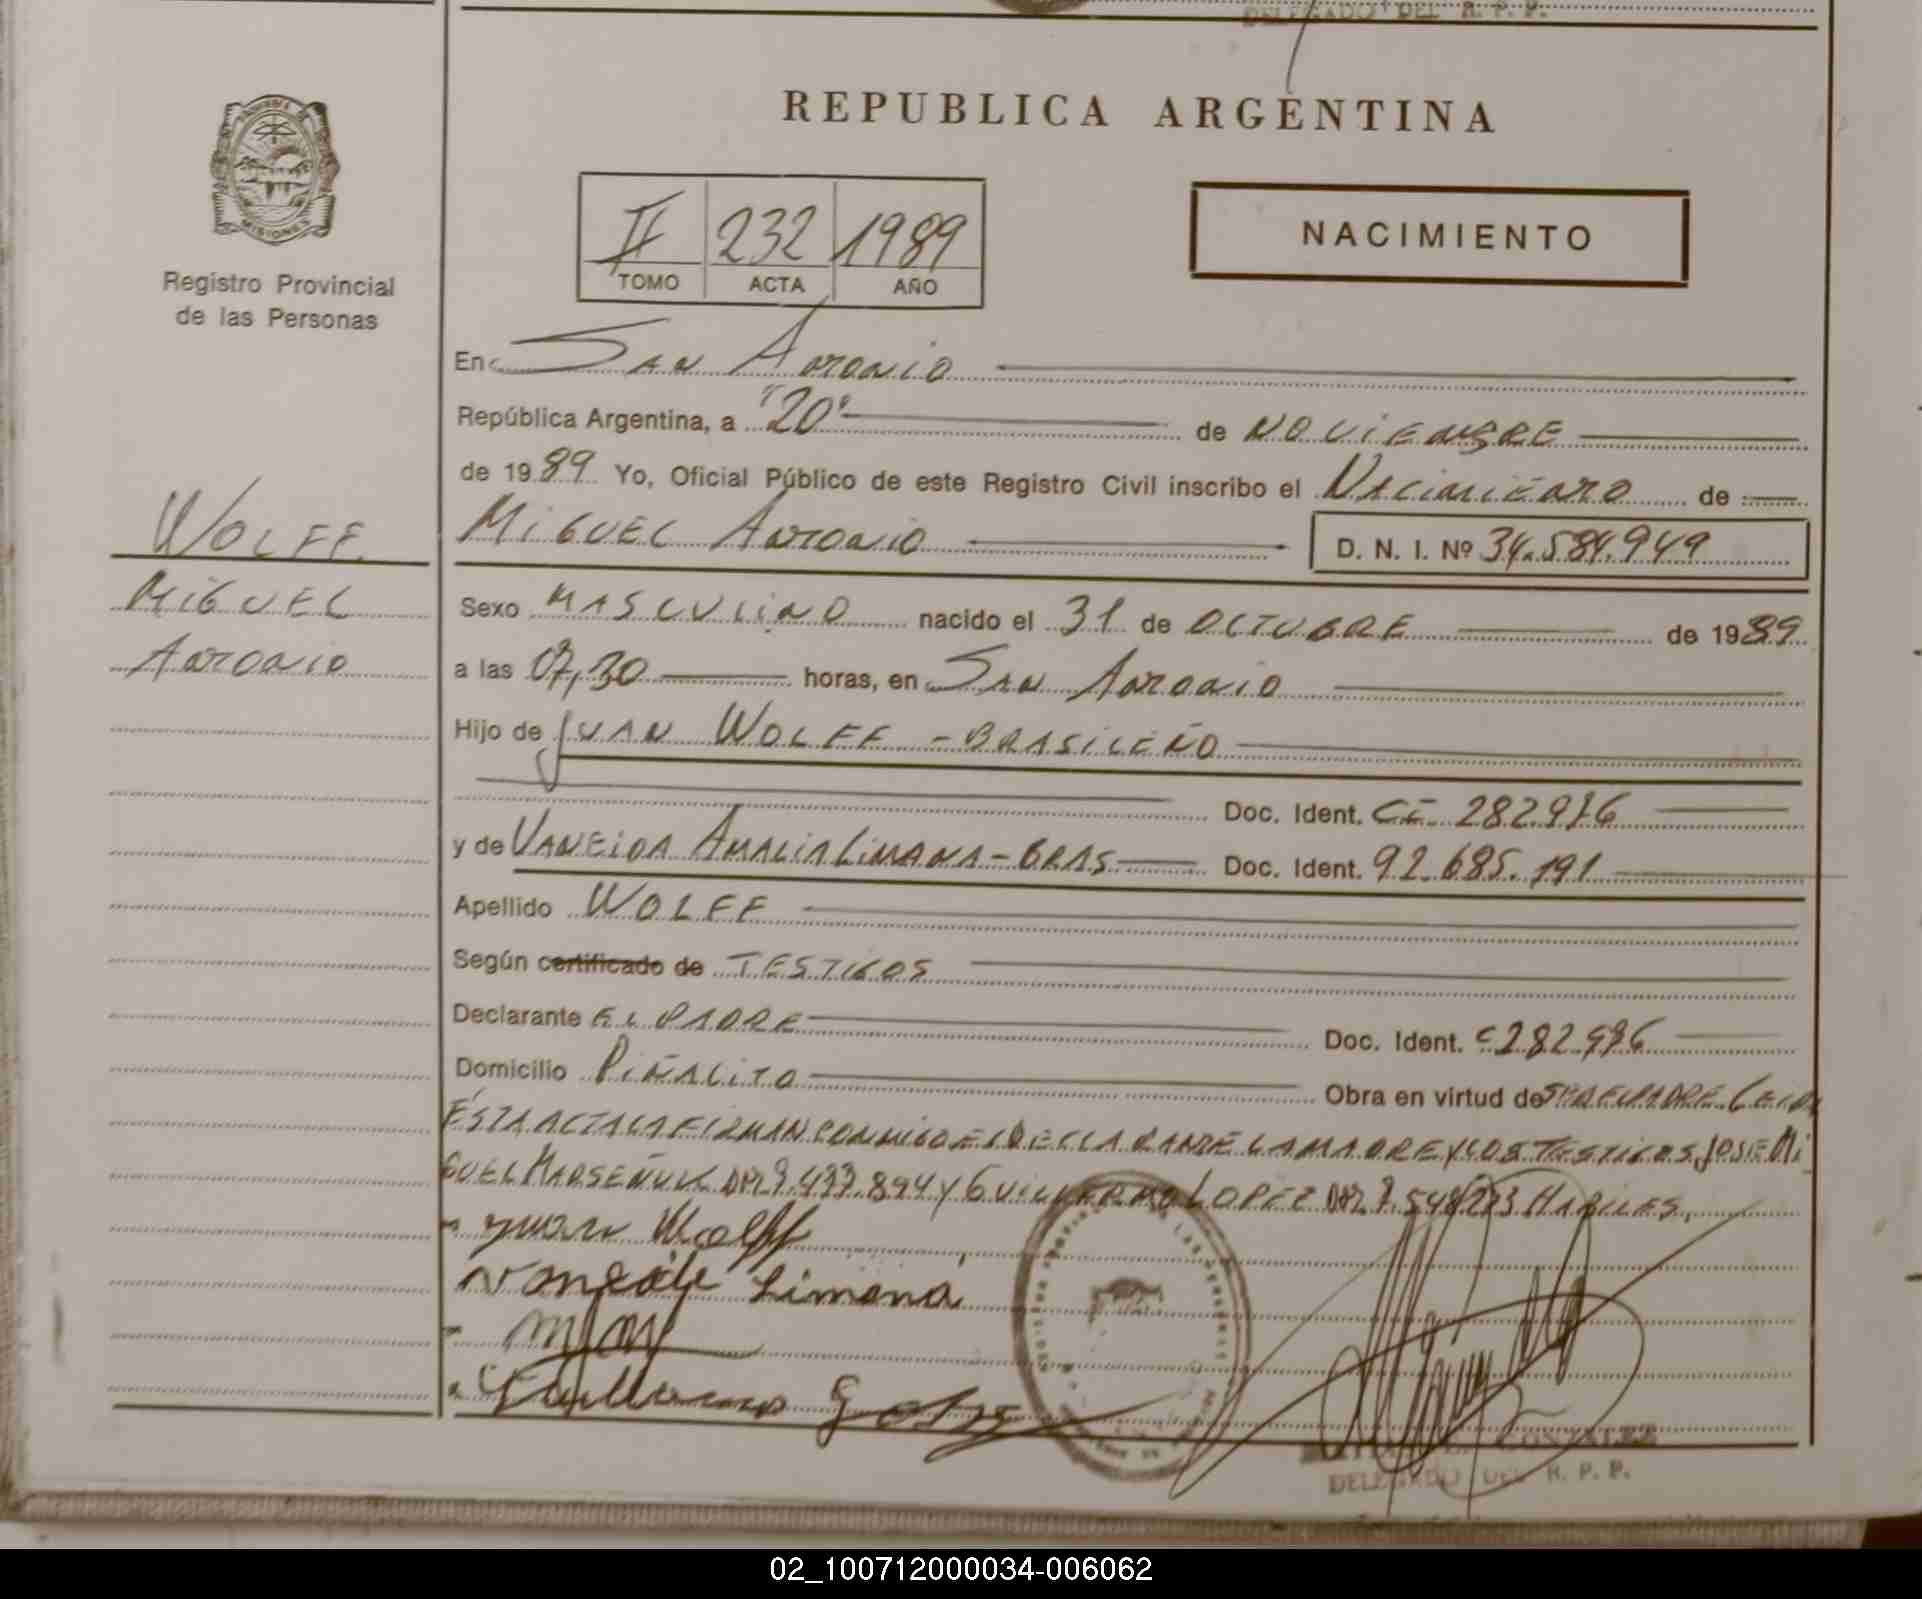 DELEGADO DEL R. P. P.
REPUBLICA ARGENTINA
MISIONES
Registro Provincial
de las Personas
II 232 1989
TOMO ACTA AÑO
NACIMIENTO
En San Antonio
República Argentina, a "20" de NOVIEMBRE
de 1989 Yo, Oficial Público de este Registro Civil inscribo el Nacimiento de
MIGUEL Antonio D. N. I. Nº 34.584.949
WOLFF
MIGUEL
Antonio
Sexo MASCULINO nacido el 31 de OCTUBRE de 1989
a las 07,30 horas, en San Antonio
Hijo de JUAN WOLFF - BRASILEÑO
Doc. Ident. CE 282976
y de VANEIDA AMALIA LIMANA - BRAS Doc. Ident. 92.685.191
Apellido WOLFF
Según certificado de TESTIGOS
Declarante EL PADRE Doc. Ident. C 282976
Domicilio PIÑALITO Obra en virtud de SER EL PADRE LEIDA
ESTA ACTA LA FIRMAN CONMIGO EL DECLARANTE LA MADRE Y LOS TESTIGOS JOSE MI
GUEL DNI 7.477.894 Y GUILLERMO LOPEZ DNI 7.548.273 HABILES.
Juan Wolff
Vaneide Limana
GONZALEZ
DELEGADO DEL R. P. P.
02_100712000034-006062